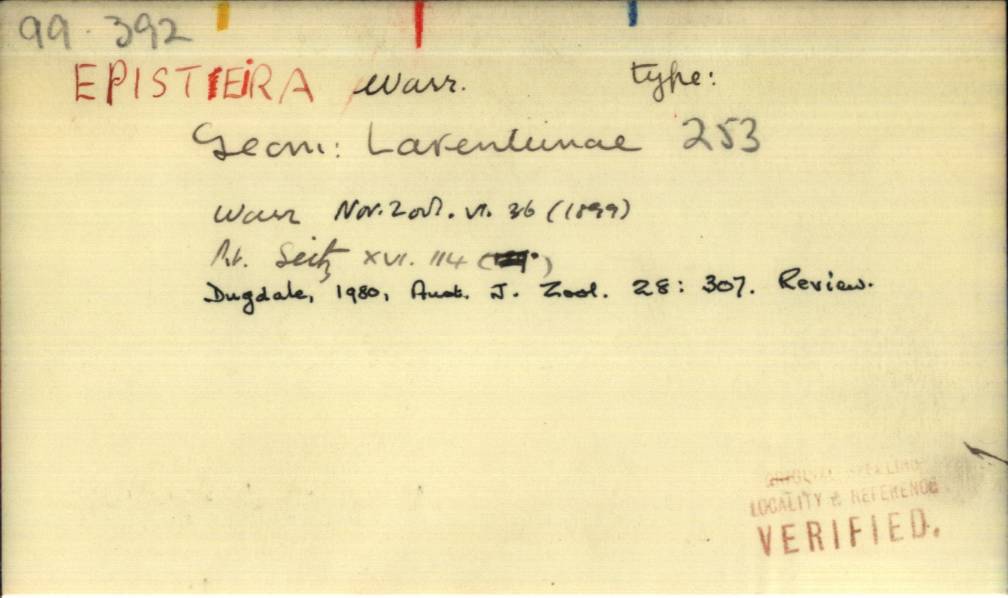 99.392
EPISTEIRA Warr. type:
Geom: Larentiinae 253
Warr Nov. Zool. VI. 36 (1899)
Prt. Seitz XVI. 114 ( )
Dugdale, 1980, Aust. J. Zool. 28: 307. Review.
ORIGINAL SPELLING
LOCALITY & REFERENCE
VERIFIED.